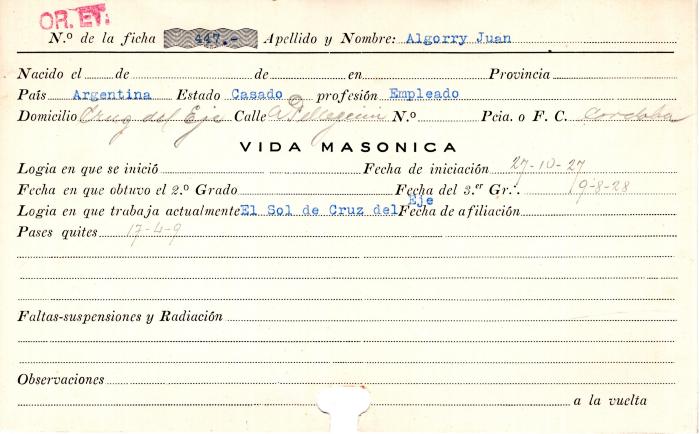 OR. ET.
N.º de la ficha 447.- Apellido y Nombre: Algorry Juan
Nacido el de de en Provincia
País Argentina Estado Casado profesión Empleado
Domicilio Cruz del Eje Calle C Pellegrini N.º Pcia. o F. C. Cordoba
VIDA MASONICA
Logia en que se inició Fecha de iniciación 27-10-27
Fecha en que obtuvo el 2.º Grado Fecha del 3.er Gr.·. 9-8-28
Logia en que trabaja actualmente El Sol de Cruz del Eje Fecha de afiliación
Pases quites 17-4-9
Faltas-suspensiones y Radiación
Observaciones
a la vuelta